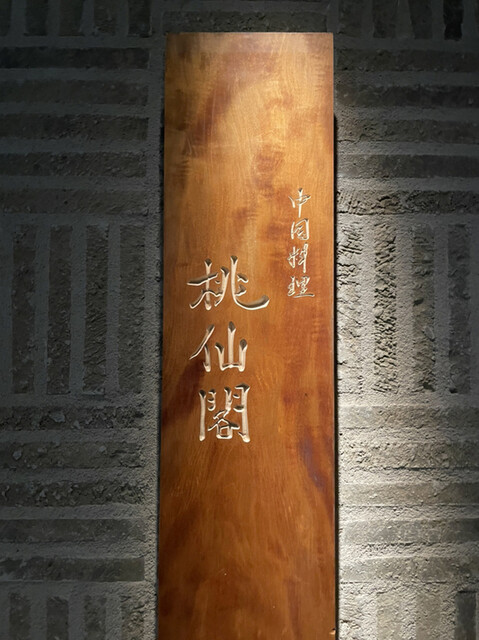 中国料理
桃仙閣